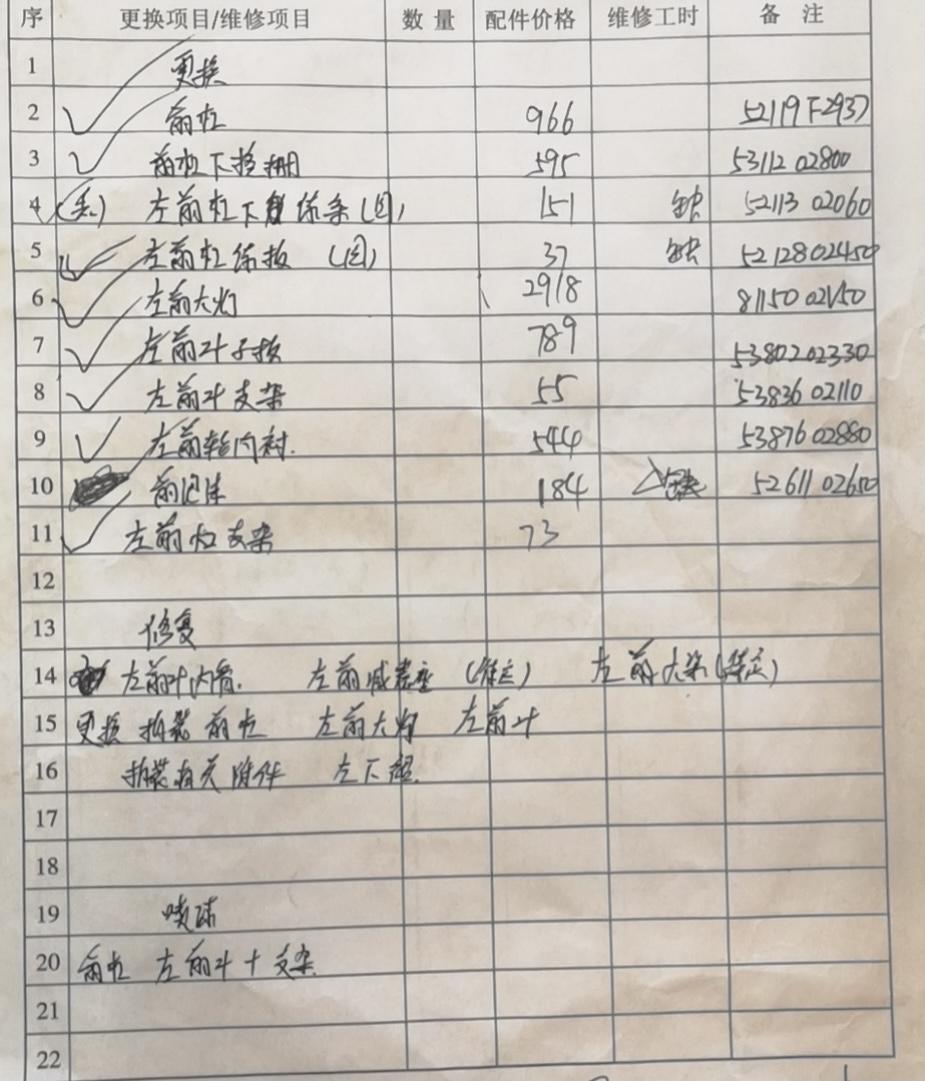 序 更换项目/维修项目 数量 配件价格 维修工时 备注
1 更换
2 前杠 966 52119F2937
3 前杠下格栅 595 53112 02800
4 左前杠下 饰条 151 缺 52113 02060
5 左前杠饰板 37 缺 52128 02450
6 左前大灯 2918 81150 02V50
7 左前叶子板 789 53802 02330
8 左前叶支架 55 53836 02110
9 左前轮内衬. 544 53876 02880
10 184 缺 52611 02650
11 左前杠支架 73
12
13 修复
14 左前叶内骨. 左前减震座 左前大梁
15 更换 拆装 前杠 左前大灯 左前叶
16 拆装有关附件 左下
17
18
19 喷漆
20 前杠 左前叶+支架
21
22